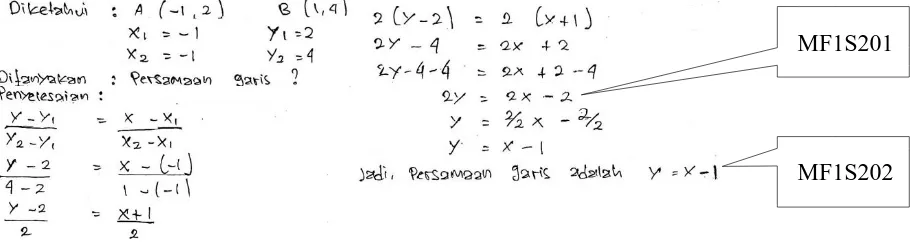 Diketahui : A (-1, 2) B (1, 4)
x₁ = -1 y₁ = 2
x₂ = -1 y₂ = 4
Ditanyakan : Persamaan garis ?
Penyelesaian :
y - y₁ / y₂ - y₁ = x - x₁ / x₂ - x₁
y - 2 / 4 - 2 = x - (-1) / 1 - (-1)
y - 2 / 2 = x + 1 / 2
2 (y - 2) = 2 (x + 1)
2y - 4 = 2x + 2
2y - 4 - 4 = 2x + 2 - 4
2y = 2x - 2
y = 2/2 x - 2/2
y = x - 1
Jadi, Persamaan garis adalah y = x - 1
MF1S201
MF1S202